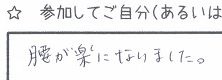 ☆ 参加してご自分(あるいは
腰が楽になりました。